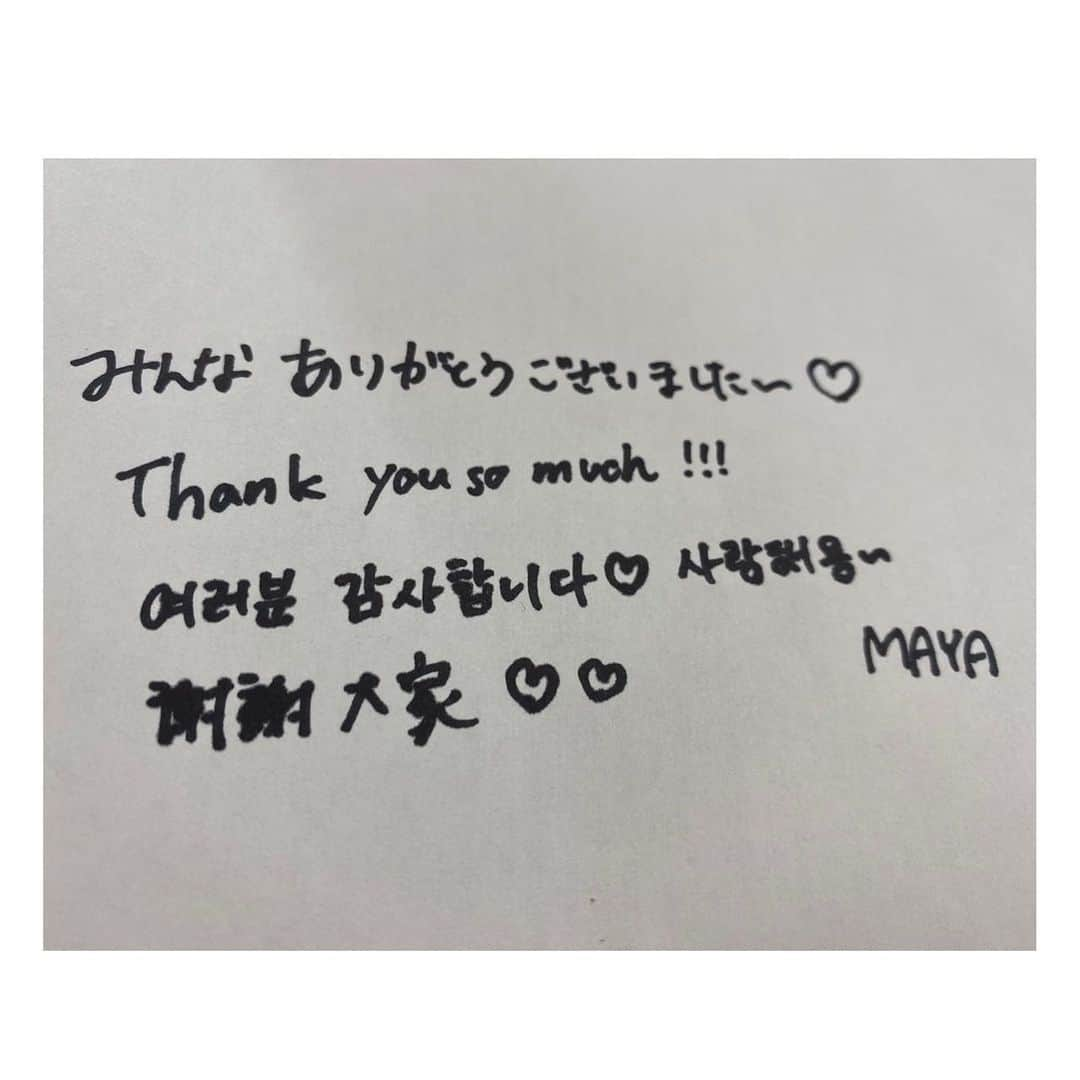 みんな ありがとうございました~♡
Thank you so much !!!
여러분 감사합니다♡ 사랑해용~
MAYA
謝謝大家 ♡♡